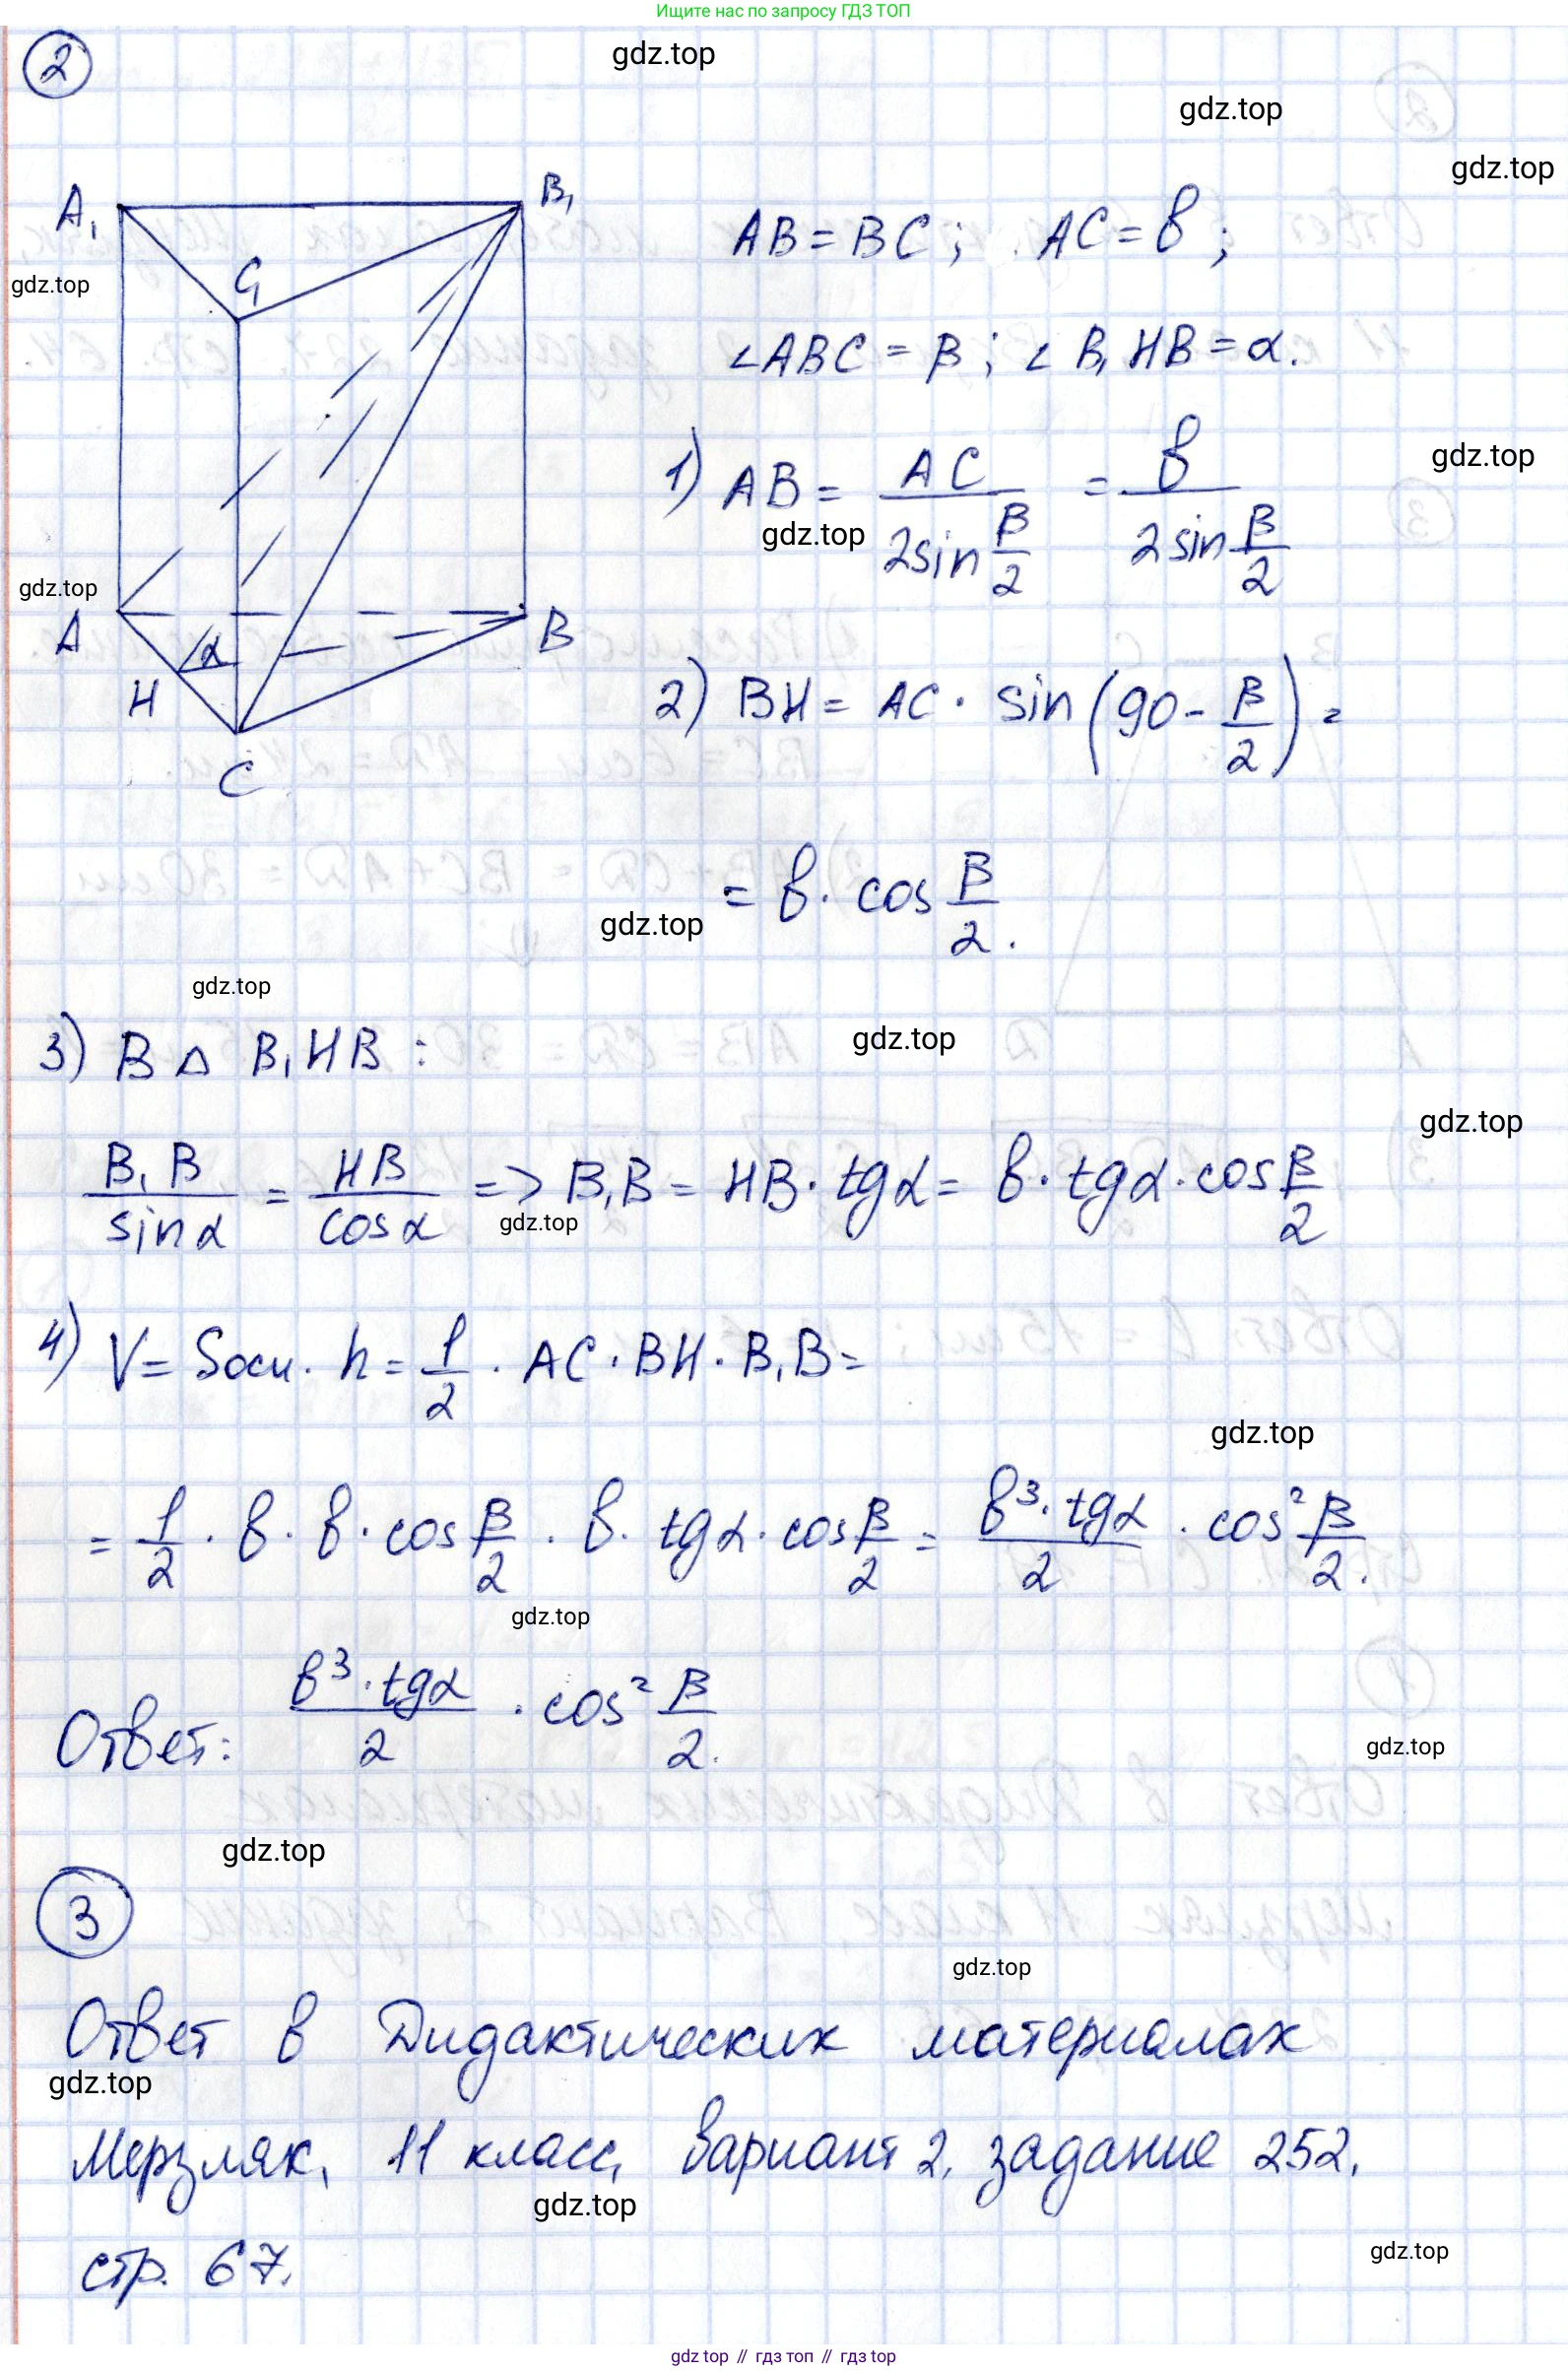 Ищите нас по запросу ГДЗ ТОП
2
gdz.top
gdz.top
gdz.top
A₁ B₁
C₁
gdz.top
AB = BC; AC = b;
∠ABC = β; ∠B₁HB = α.
gdz.top
1) AB = AC / (2sin β/2) = b / (2sin β/2)
gdz.top
gdz.top
A B
H α
C
2) BH = AC · sin(90 - β/2) =
= b · cos β/2.
gdz.top
gdz.top
3) В Δ B₁HB:
gdz.top
gdz.top
B₁B / sin α = HB / cos α => B₁B = HB · tg α = b · tg α · cos β/2
gdz.top
4) V = Sосн · h = 1/2 · AC · BH · B₁B =
gdz.top
= 1/2 · b · b · cos β/2 · b · tg α · cos β/2 = b³ · tg α / 2 · cos² β/2.
gdz.top
Ответ: b³ · tg α / 2 · cos² β/2.
gdz.top
gdz.top
3
gdz.top
Ответ в Дидактических материалах
gdz.top
Мерзляк, 11 класс, вариант 2, задание 252,
gdz.top
стр. 67.
gdz.top
gdz.top // гдз топ // гдз.top